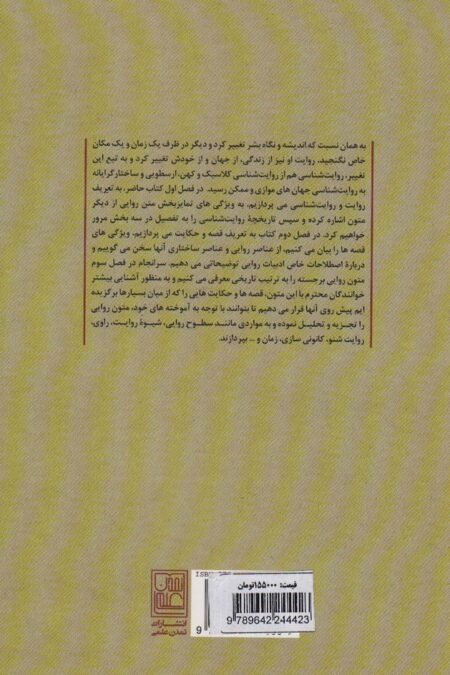 به همان نسبت که اندیشه و نگاه بشر تغییر کرد و دیگر در ظرف یک زمان و یک مکان
خاص نگنجید، روایت او نیز از زندگی، از جهان و از خودش تغییر کرد و به تبع این
تغییر، روایت‌شناسی هم از روایت‌شناسی کلاسیک و کهن، ارسطویی و ساختارگرایانه
به روایت‌شناسی جهان های موازی و ممکن رسید. در فصل اول کتاب حاضر، به تعریف
روایت و روایت‌شناسی می پردازیم، به ویژگی های تمایزبخش متن روایی از دیگر
متون اشاره کرده و سپس تاریخچهٔ روایت‌شناسی را به تفصیل در سه بخش مرور
خواهیم کرد. در فصل دوم کتاب به تعریف قصه و حکایت می پردازیم، ویژگی های
قصه ها را بیان می کنیم، از عناصر روایی و عناصر ساختاری آنها سخن می گوییم و
دربارهٔ اصطلاحات خاص ادبیات روایی توضیحاتی می دهیم. سرانجام در فصل سوم
متون روایی برجسته را به ترتیب تاریخی معرفی می کنیم و به منظور آشنایی بیشتر
خوانندگان محترم با این متون، قصه ها و حکایت هایی را که از میان بسیارها برگزیده
ایم پیش روی آنها قرار می دهیم تا بتوانند با توجه به آموخته های خود، متون روایی
را تجزیه و تحلیل نموده و به مواردی مانند سطوح روایی، شیوهٔ روایت، راوی،
روایت شنو، کانونی سازی، زمان و ... بپردازند.
ISBN
قیمت: ۱۵۵۰۰۰تومان
9 789642 244423
9
تمدن علمی
انتشارات
تمدن علمی